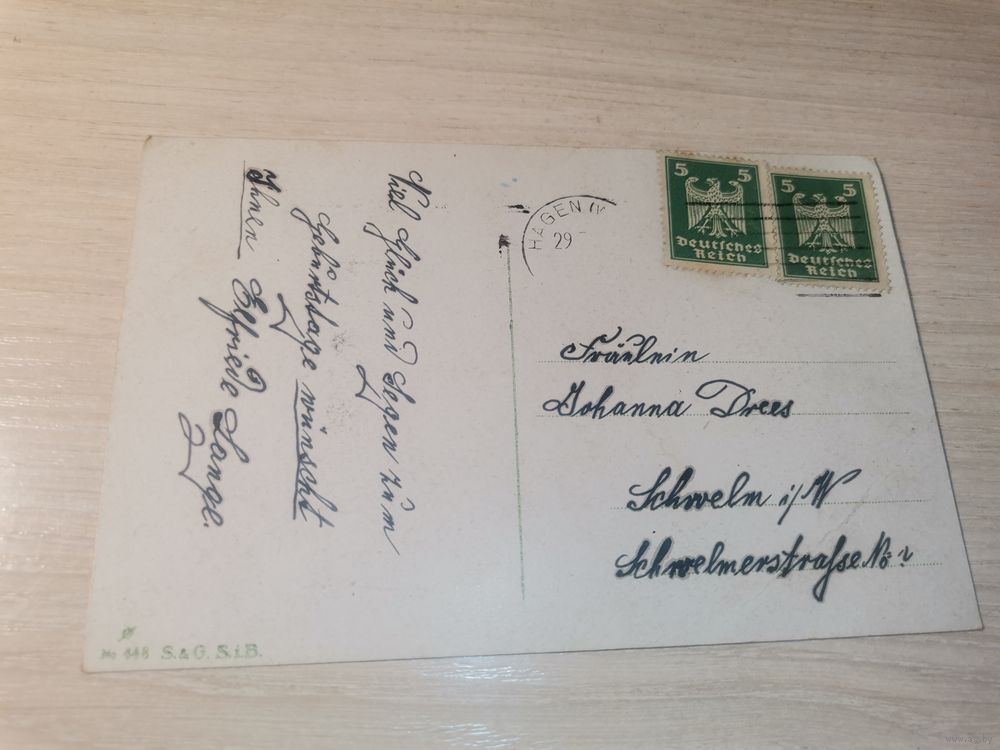 Viel Glück und Segen zum
Geburtstage wünscht
Ihnen Elfriede Lange.
HAGEN (W
29
5 5
Deutsches
Reich
5 5
Deutsches
Reich
Fräulein
Johanna Drees
Schwelm i/W
Schwelmerstraße No
No 448 S.&G.S.i.B.